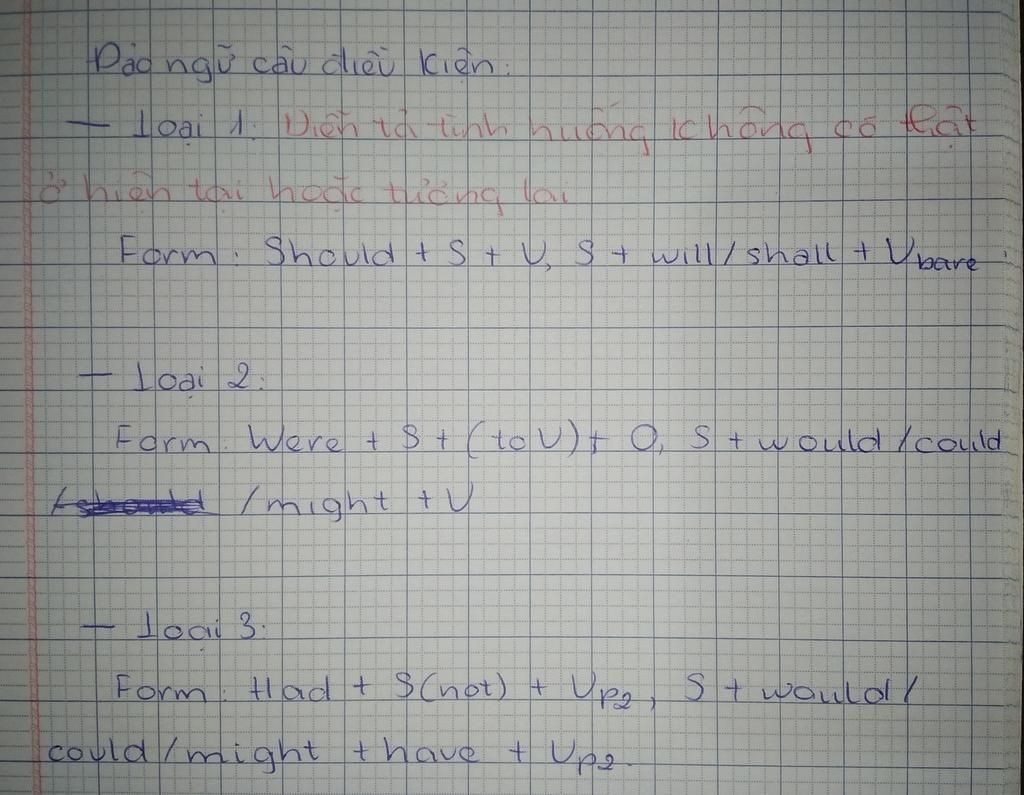 Đảo ngữ câu điều kiện:
- Loại 1: Diễn tả tình huống không có thật
ở hiện tại hoặc tương lai
Form: Should + S + V, S + will/shall + Vbare
- Loại 2:
Form: Were + S + (to V) + O, S + would/could
/might + V
- Loại 3:
Form: Had + S(not) + Vp2, S + would/
could/might + have + Vp2.